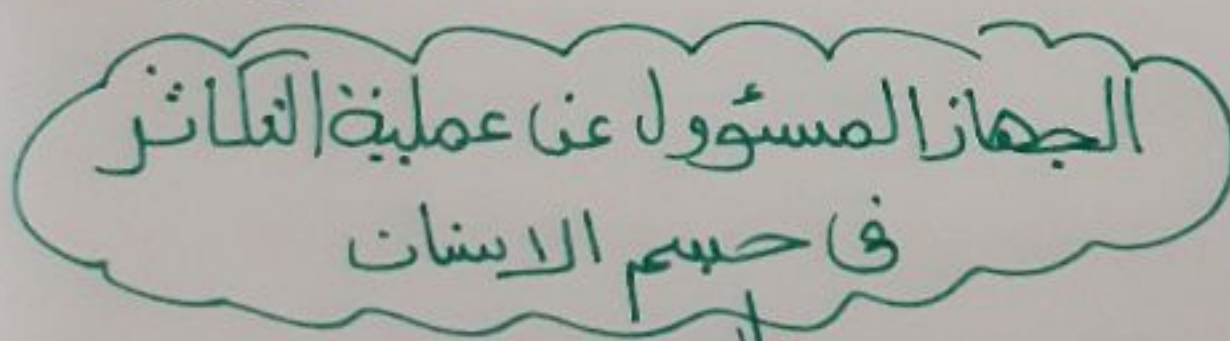 الجهاز المسئوول عن عملية التكاثر
فى جسم الانسان